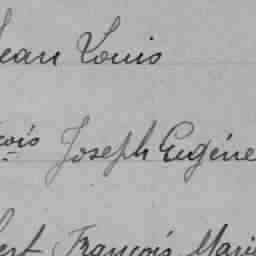 Jean Louis
çois Joseph Eugène
bert François Marie